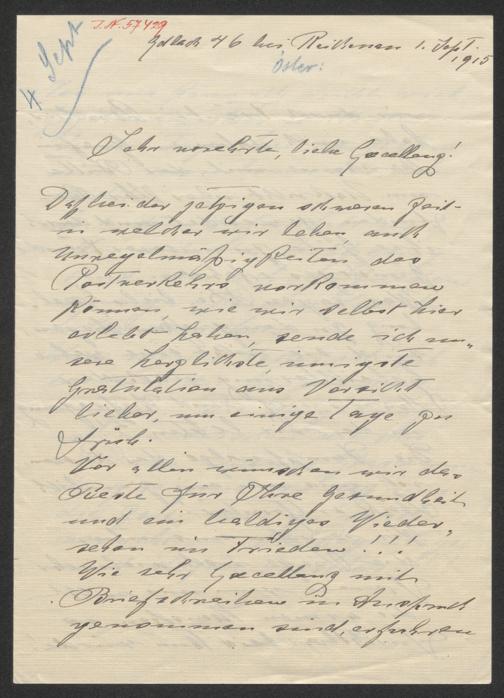 I.N. 57429
Edlach 46 bei Reichenau 1. Sept.
1915
Öster:
4 Sept
Sehr verehrte, liebe Excellenz!
Da bei der jetzigen schweren Zeit
in welcher wir leben, auch
Unregelmäßigkeiten des
Postverkehrs vorkommen
können, wie wir selbst hier
erlebt haben, sende ich un-
sere herzlichste, innigste
Gratulation aus Vorsicht
lieber, um einige Tage zu
früh.
Vor allem wünschen wir das
Beste für Ihre Gesundheit
und ein baldiges Wieder-
sehen im Frieden!!!
Wie sehr Excellenz mit
Briefschreiben in Anspruch
genommen sind, erfuhren